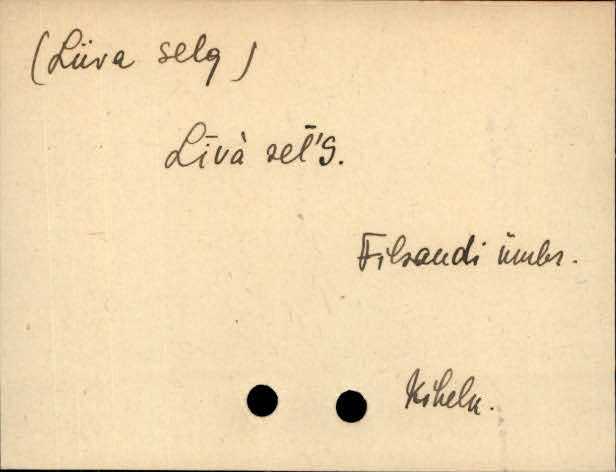 (Liiva selg)
Līvà sel̄'G.
Filsandi ümbr.
Kihelk.